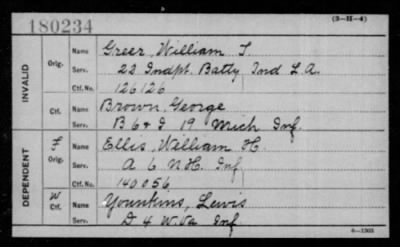 180234
(3-H-4)
INVALID
Orig. Name Greer, William T.
Serv. 22 Indpt. Batty Ind L.A.
Ctf. No. 126126
Ctf. Name Brown, George
Serv. B 6 & I 19 Mich Inf.
DEPENDENT
F Orig. Name Ellis, William H.
Serv. A 6 N.H. Inf
Ctf. No. 140056
W Ctf. Name Younkins, Lewis
Serv. D 4 W.Va Inf